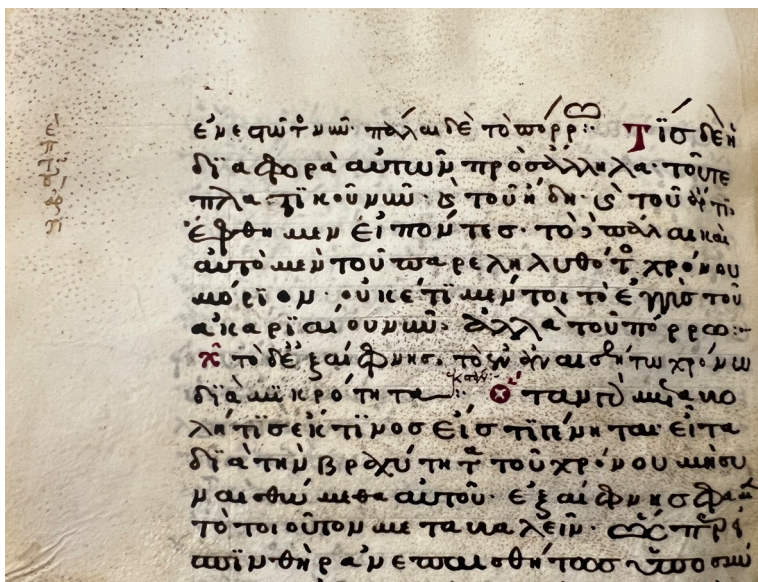 ἐνεστῶτος νῦν· πάλαι δὲ τὸ πόρρω: Τίς δὲ ἡ
διαφορὰ αὐτῶν πρὸς ἄλληλα· τοῦτε
πλατικοῦ νῦν· καὶ τοῦ ἤδη· καὶ τοῦ ἄρτι,
ἔφθημεν εἰπόντες· τὸ πάλαι καὶ
αὐτὸ μὲν τοῦ παρεληλυθότος χρόνου
μόριον· οὐκέτι μέντοι τὸ ἐγγὺς τοῦ
ἀκαριαίου νῦν· ἀλλὰ τοῦ πόρρω:
τὸ δ' ἐξαίφνης, τὸ ἐν ἀναισθήτω χρόνω
διὰ μικρότητα: Ὅταν μεταβο
λή τις ἔκ τινος εἴς τι γένηται· εἶτα
διὰ τὴν βραχύτητα τοῦ χρόνου μὴ συ
ναισθώμεθα αὐτοῦ· ἐξαίφνης φαμὲν
τὸ τοιοῦτον μετακαλεῖν· ὡς
σπινθῆρα ἀνεπαισθήτως ὑπὸ